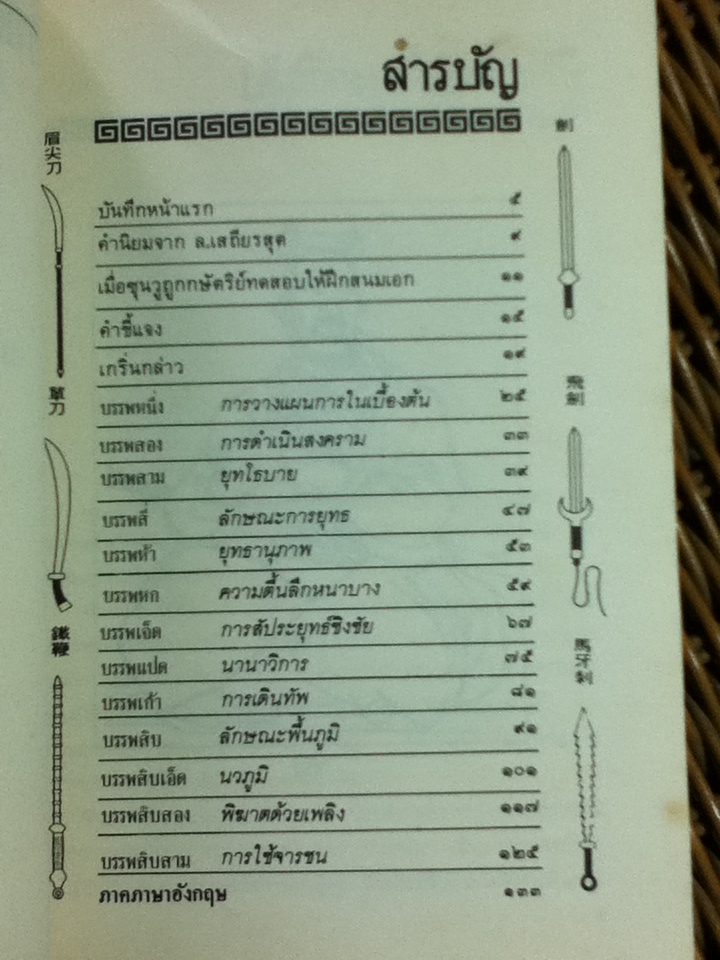 สารบัญ
บันทึกหน้าแรก ๕
คำนิยมจาก ล.เสถียรสุต ๙
เมื่อซุนวูถูกกษัตริย์ทดสอบให้ฝึกสนมเอก ๑๑
คำชี้แจง ๑๕
เกริ่นกล่าว ๑๙
บรรพหนึ่ง การวางแผนการในเบื้องต้น ๒๕
บรรพสอง การดำเนินสงคราม ๓๓
บรรพสาม ยุทโธบาย ๓๙
บรรพสี่ ลักษณะการยุทธ ๔๗
บรรพห้า ยุทธานุภาพ ๕๓
บรรพหก ความตื้นลึกหนาบาง ๕๙
บรรพเจ็ด การสัประยุทธ์ชิงชัย ๖๗
บรรพแปด นานาวิการ ๗๕
บรรพเก้า การเดินทัพ ๘๑
บรรพสิบ ลักษณะพื้นภูมิ ๙๑
บรรพสิบเอ็ด นวภูมิ ๑๐๑
บรรพสิบสอง พิฆาตด้วยเพลิง ๑๑๗
บรรพสิบสาม การใช้จารชน ๑๒๕
ภาคภาษาอังกฤษ ๑๓๓
眉尖刀
單刀
鐵鞭
劍
飛劍
馬牙刺